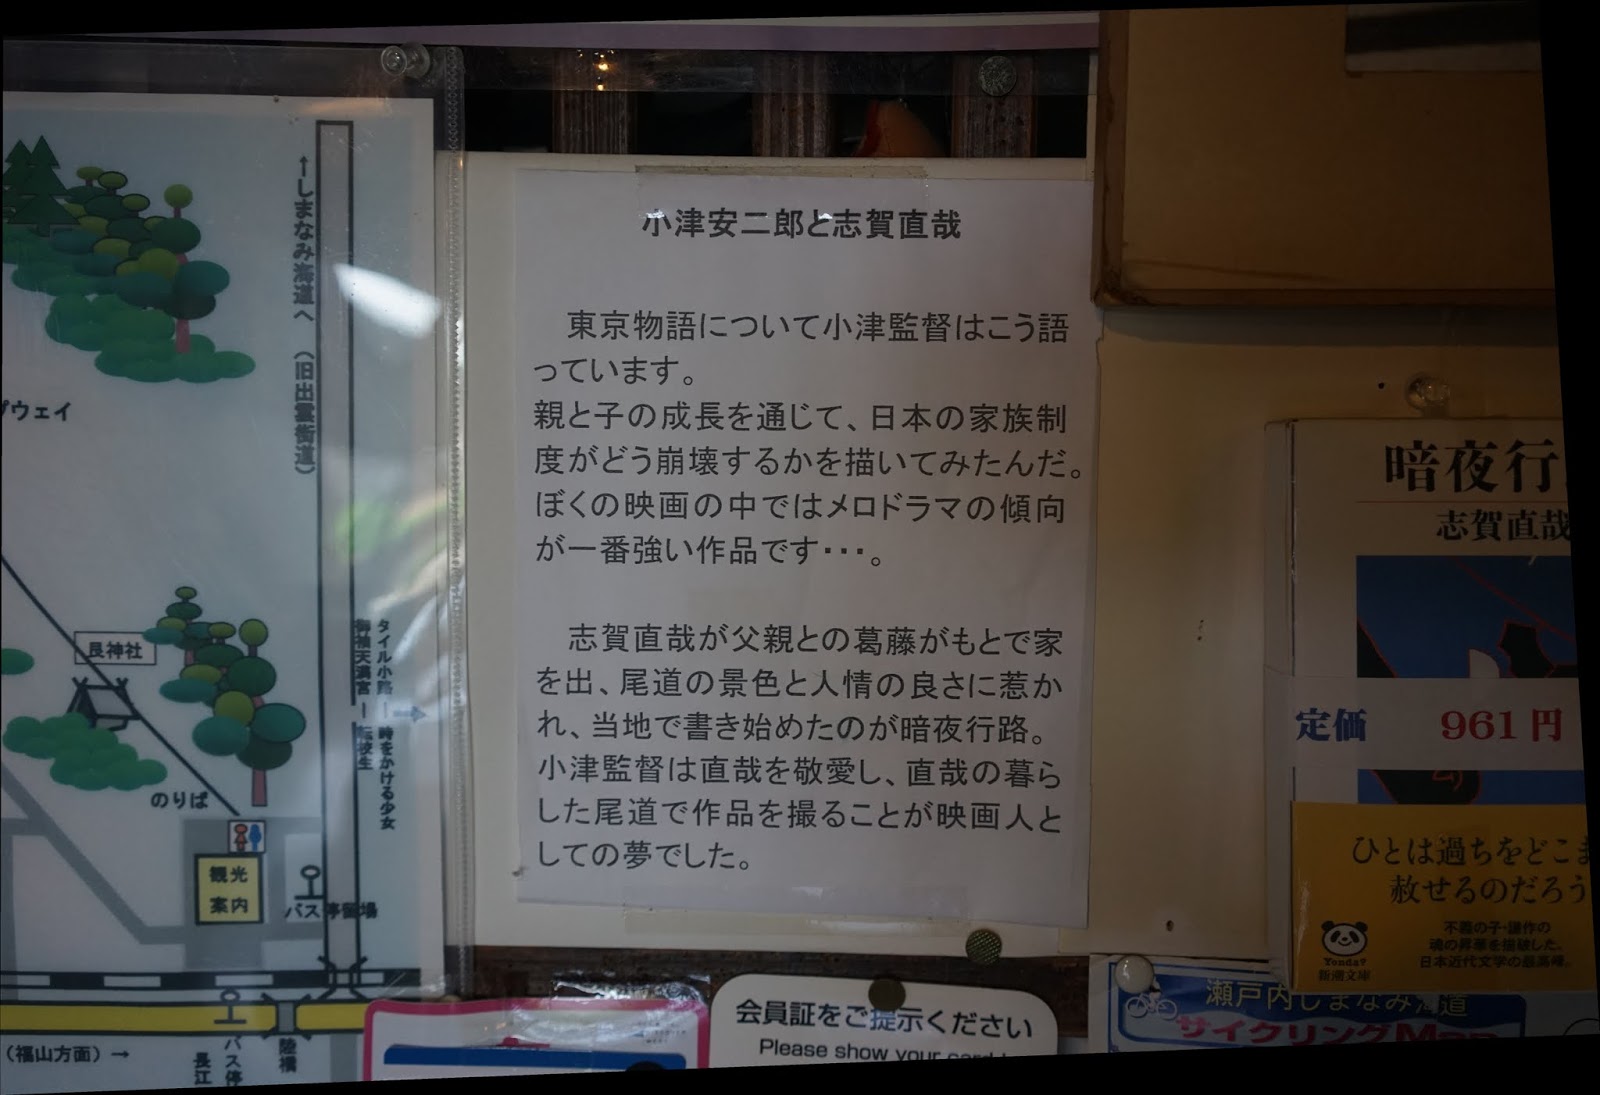 小津安二郎と志賀直哉
東京物語について小津監督はこう語
っています。
親と子の成長を通じて、日本の家族制
度がどう崩壊するかを描いてみたんだ。
ぼくの映画の中ではメロドラマの傾向
が一番強い作品です・・・。
志賀直哉が父親との葛藤がもとで家
を出、尾道の景色と人情の良さに惹か
れ、当地で書き始めたのが暗夜行路。
小津監督は直哉を敬愛し、直哉の暮ら
した尾道で作品を撮ることが映画人と
しての夢でした。
←しまなみ海道へ (旧出雲街道)
プウェイ
艮神社
タイル小路ー時をかける少女
御袖天満宮ー転校生
のりば
観光
案内
バス停留場
(福山方面)→
長江
バス停
陸橋
暗夜行
志賀直哉
定価 961円
ひとは過ちをどこま
赦せるのだろう
不義の子・謙作の
魂の昇華を描破した。
日本近代文学の最高峰。
Yonda?
新潮文庫
会員証をご提示ください
Please show your card
瀬戸内しまなみ海道
サイクリングMap